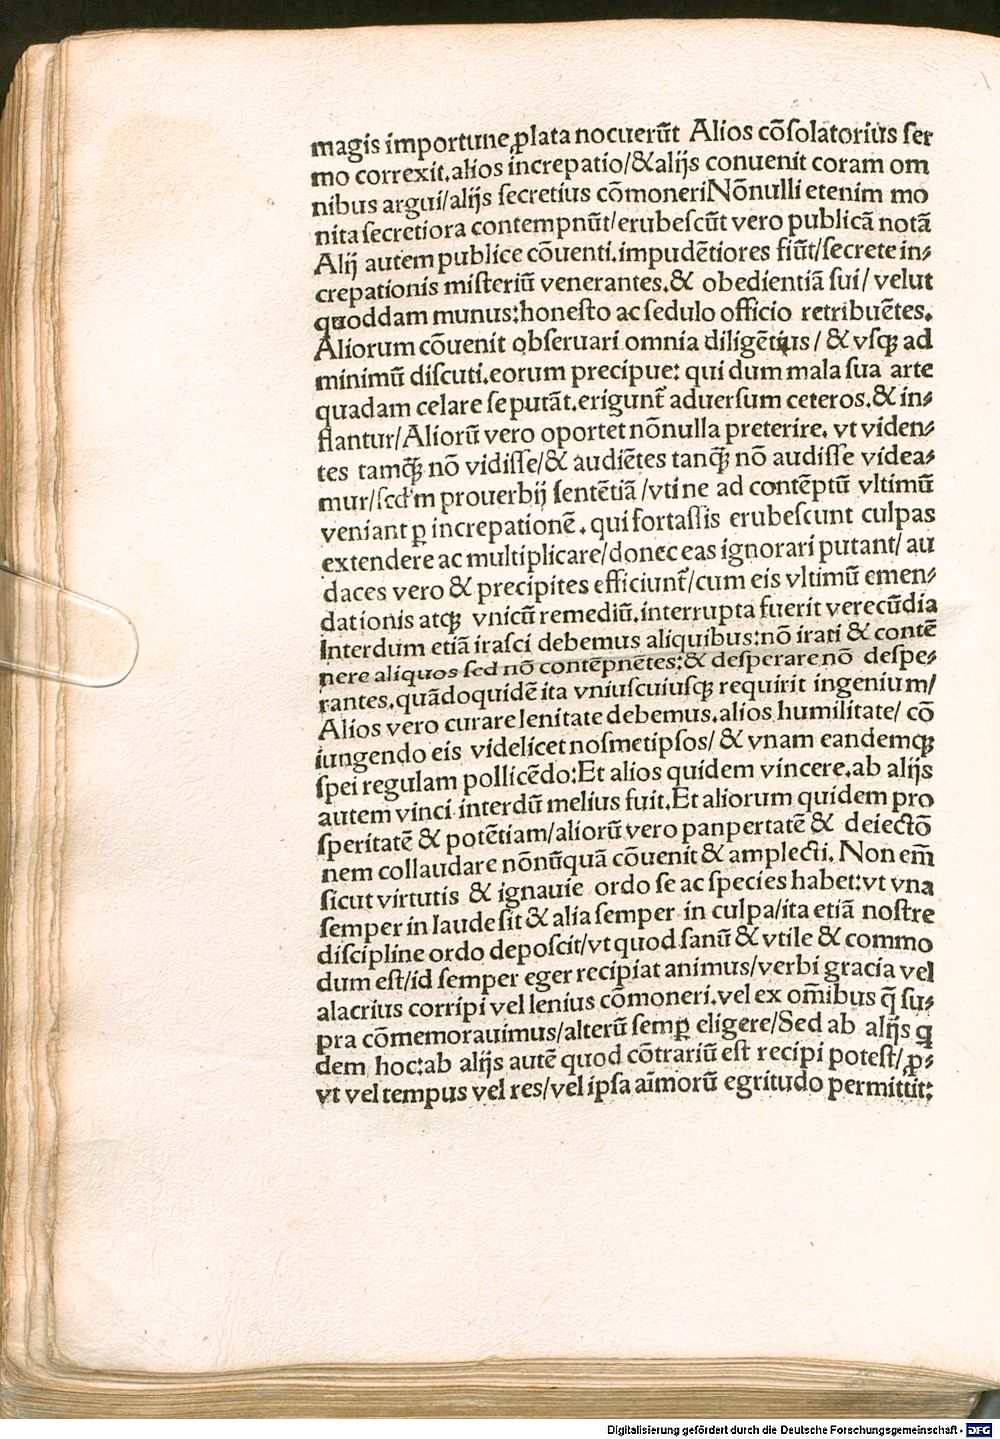 magis importune ꝓlata nocuerūt Alios cōſolatorius ſer
mo correxit.alios increpatio/&alijs conuenit coram om
nibus argui/alijs ſecretius cōmoneriNōnulli etenim mo
nita ſecretiora contempnūt/erubeſcūt vero publicā notā
Alij autem publice cōuenti.impudētiores fiūt/ſecrete in⸗
crepationis miſteriū venerantes.& obedientiā ſui/ velut
quoddam munus:honeſto ac ſedulo officio retribuētes.
Aliorum cōuenit obſeruari omnia diligētius/ & vſqꝫ ad
minimū diſcuti.eorum precipue: qui dum mala ſua arte
quadam celare ſe putāt.erigunt᷑ aduerſum ceteros.& in⸗
flantur/Aliorū vero oportet nōnulla preterire. vt viden⸗
tes tamq̄ꝫ nō vidiſſe/& audiētes tanq̄ꝫ nō audiſſe videa⸗
mur/ſcd'm prouerbij ſentētiā/vti ne ad contēptū vltimū
veniant ꝑ increpationē.qui fortaſſis erubeſcunt culpas
extendere ac multiplicare/donec eas ignorari putant/ au
daces vero & precipites efficiunt᷑/cum eis vltimū emen⸗
dationis atqꝫ vnicū remediū.interrupta fuerit verecūdia
Interdum etiā iraſci debemus aliquibus:nō irati & contē
nere aliquos ſed nō contēpnētes:& deſperare nō deſpe⸗
rantes.quādoquidē ita vniuſcuiuſqꝫ requirit ingenium/
Alios vero curare lenitate debemus.alios humilitate/ cō
iungendo eis videlicet noſmetipſos/ & vnam eandemqꝫ
ſpei regulam pollicēdo:Et alios quidem vincere.ab alijs
autem vinci interdū melius fuit.Et aliorum quidem pro
ſperitatē & potētiam/aliorū vero panpertatē & deiectō
nem collaudare nōnūquā cōuenit & amplecti. Non em̄
ſicut virtutis & ignauie ordo ſe ac ſpecies habet:vt vna
ſemper in laude ſit & alia ſemper in culpa/ita etiā noſtre
diſcipline ordo depoſcit/vt quod ſanū & vtile & commo
dum eſt/id ſemper eger recipiat animus/verbi gracia vel
alacrius corripi vel lenius cōmoneri.vel ex om̄ibus q̄ ſu⸗
pra cōmemorauimus/alterū ſemꝑ eligere/Sed ab alijs q
dem hoc:ab alijs autē quod cōtrariū eſt recipi poteſt/ꝓ⸗
vt vel tempus vel res/vel ipſa aīmorū egritudo permittit:
Digitalisierung gefördert durch die Deutsche Forschungsgemeinschaft - DFG